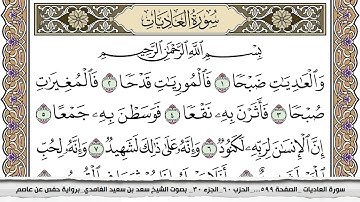 سُورَةُ العَادِيَاتِ
بِسْمِ اللَّهِ الرَّحْمَٰنِ الرَّحِيمِ
وَالْعَادِيَاتِ ضَبْحًا ١ فَالْمُورِيَاتِ قَدْحًا ٢ فَالْمُغِيرَاتِ
صُبْحًا ٣ فَأَثَرْنَ بِهِ نَقْعًا ٤ فَوَسَطْنَ بِهِ جَمْعًا ٥
إِنَّ الْإِنسَانَ لِرَبِّهِ لَكَنُودٌ ٦ وَإِنَّهُ عَلَىٰ ذَٰلِكَ لَشَهِيدٌ ٧ وَإِنَّهُ لِحُبِّ
سورة العاديات_ الصفحة ٥٩٩_ الحزب ٦٠_ الجزء ٣٠_ بصوت الشيخ سعد بن سعيد الغامدي_ برواية حفص عن عاصم